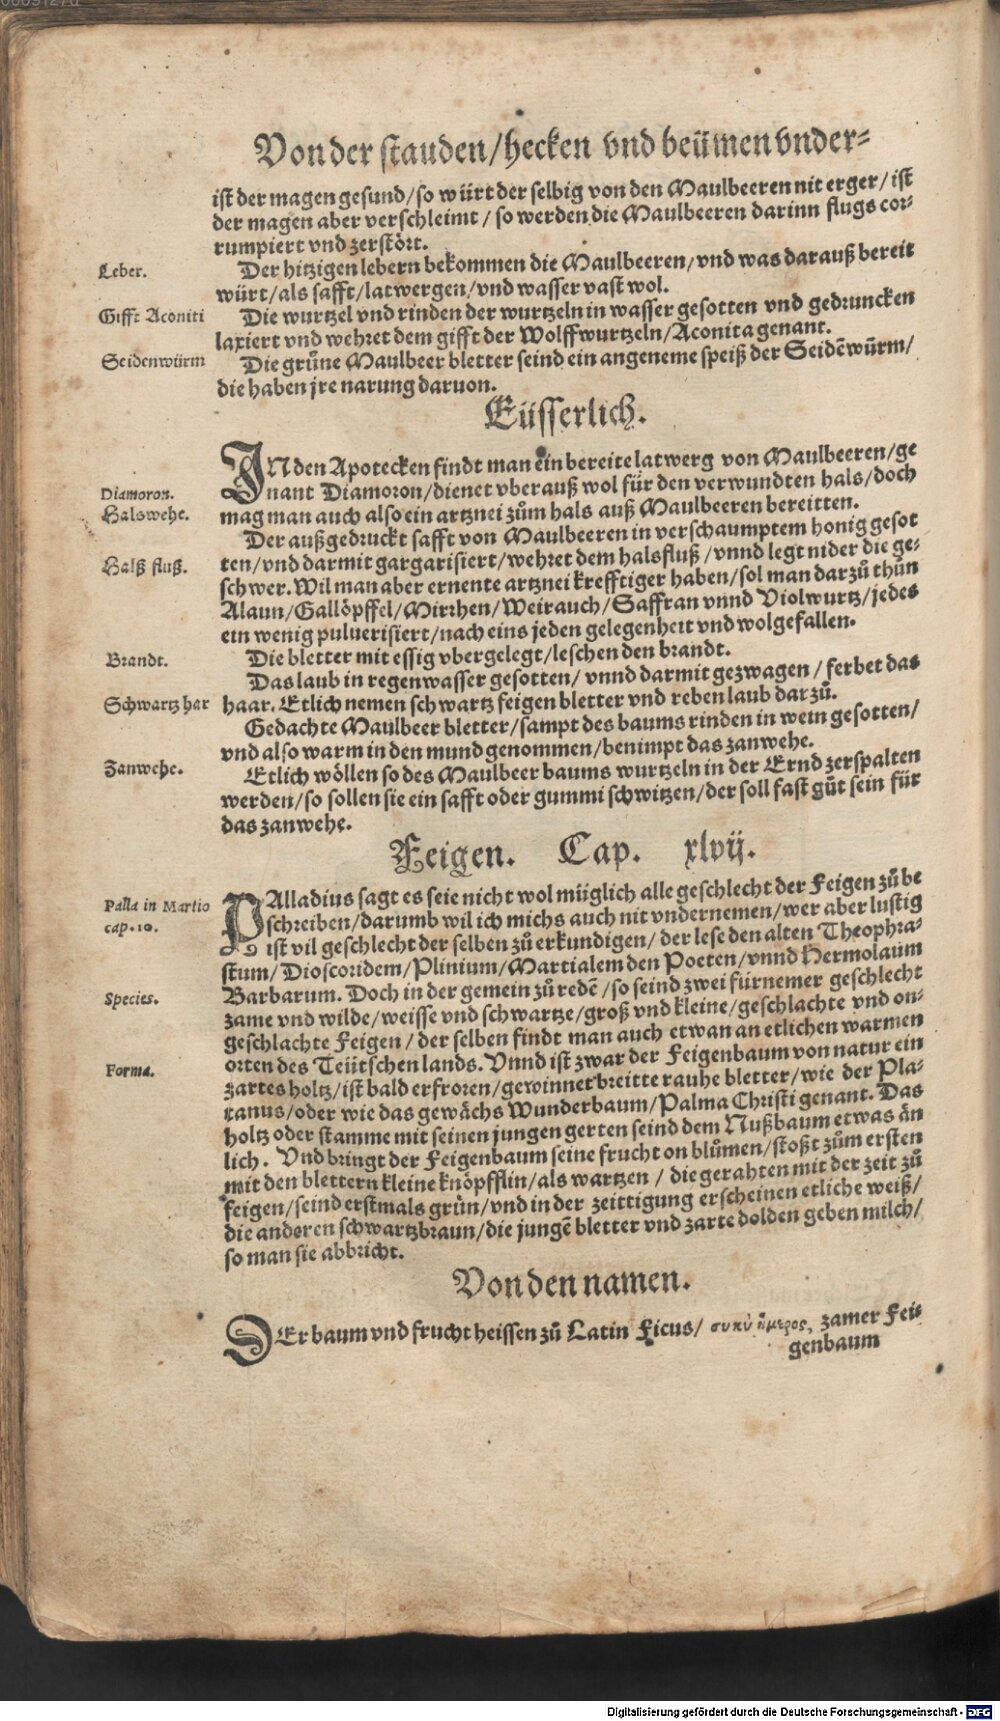 Von der stauden/hecken vnd beümen vnder-
ist der magen gesund/so würt der selbig von den Maulbeeren nit erger/ist
der magen aber verschleimt/so werden die Maulbeeren darinn flugs cor-
rumpiert vnd zerstört.
Leber.
Der hitzigen lebern bekommen die Maulbeeren/vnd was darauß bereit
würt/als safft/latwergen/vnd wasser vast wol.
Gifft Aconiti
Die wurtzel vnd rinden der wurtzeln in wasser gesotten vnd gedruncken
laxiert vnd wehret dem gifft der Wolffwurtzeln/Aconita genant.
Seidenwürm
Die grüne Maulbeer bletter seind ein angeneme speiß der Seidēwürm/
die haben jre narung daruon.
Eüsserlich.
IN den Apotecken findt man ein bereite latwerg von Maulbeeren/ge
Diamoron.
nant Diamoron/dienet vberauß wol für den verwundten hals/doch
Halswehe.
mag man auch also ein artznei zům hals auß Maulbeeren bereitten.
Der außgedruckt safft von Maulbeeren in verschaumptem honig gesot
Halß fluß.
ten/vnd darmit gargarisiert/wehret dem halsfluß/vnnd legt nider die ge-
schwer. Wil man aber ernente artznei krefftiger haben/sol man darzů thůn
Alaun/Gallöpffel/Mirrhen/Weirauch/Saffran vnnd Violwurtz/jedes
ein wenig puluerisiert/nach eins jeden gelegenheit vnd wolgefallen.
Brandt.
Die bletter mit essig vbergelegt/leschen den brandt.
Das laub in regenwasser gesotten/vnnd darmit gezwagen/ferbet das
Schwartz har
haar. Etlich nemen schwartz feigen bletter vnd reben laub darzů.
Gedachte Maulbeer bletter/sampt des baums rinden in wein gesotten/
vnd also warm in den mund genommen/benimpt das zanwehe.
Zanwehe.
Etlich wöllen so des Maulbeer baums wurtzeln in der Ernd zerspalten
werden/so sollen sie ein safft oder gummi schwitzen/der soll fast gůt sein für
das zanwehe.
Feigen. Cap. xlvij.
Palla in Martio
cap. 10.
PAlladius sagt es seie nicht wol müglich alle geschlecht der Feigen zů be
schreiben/darumb wil ich michs auch nit vndernemen/wer aber lustig
ist vil geschlecht der selben zů erkundigen/der lese den alten Theophra-
stum/Dioscoridem/Plinium/Martialem den Poeten/vnnd Hermolaum
Species.
Barbarum. Doch in der gemein zů redē/so seind zwei fürnemer geschlecht
zame vnd wilde/weisse vnd schwartze/groß vnd kleine/geschlachte vnd on-
geschlachte Feigen/der selben findt man auch etwan an etlichen warmen
Forma.
orten des Teütschen lands. Vnnd ist zwar der Feigenbaum von natur ein
zartes holtz/ist bald erfroren/gewinnet breitte rauhe bletter/wie der Pla-
tanus/oder wie das gewächs Wunderbaum/Palma Christi genant. Das
holtz oder stamme mit seinen jungen gerten seind dem Nußbaum etwas än
lich. Vnd bringt der Feigenbaum seine frucht on blůmen/stoßt zům ersten
mit den blettern kleine knöpfflin/als wartzen/die gerahten mit der zeit zů
feigen/seind erstmals grün/vnd in der zeittigung erscheinen etliche weiß/
die anderen schwartzbraun/die jungē bletter vnd zarte dolden geben milch/
so man sie abbricht.
Von den namen.
DEr baum vnd frucht heissen zů Latin Ficus/συκῦ ἥμερος, zamer Fei-
genbaum
Digitalisierung gefördert durch die Deutsche Forschungsgemeinschaft - DFG